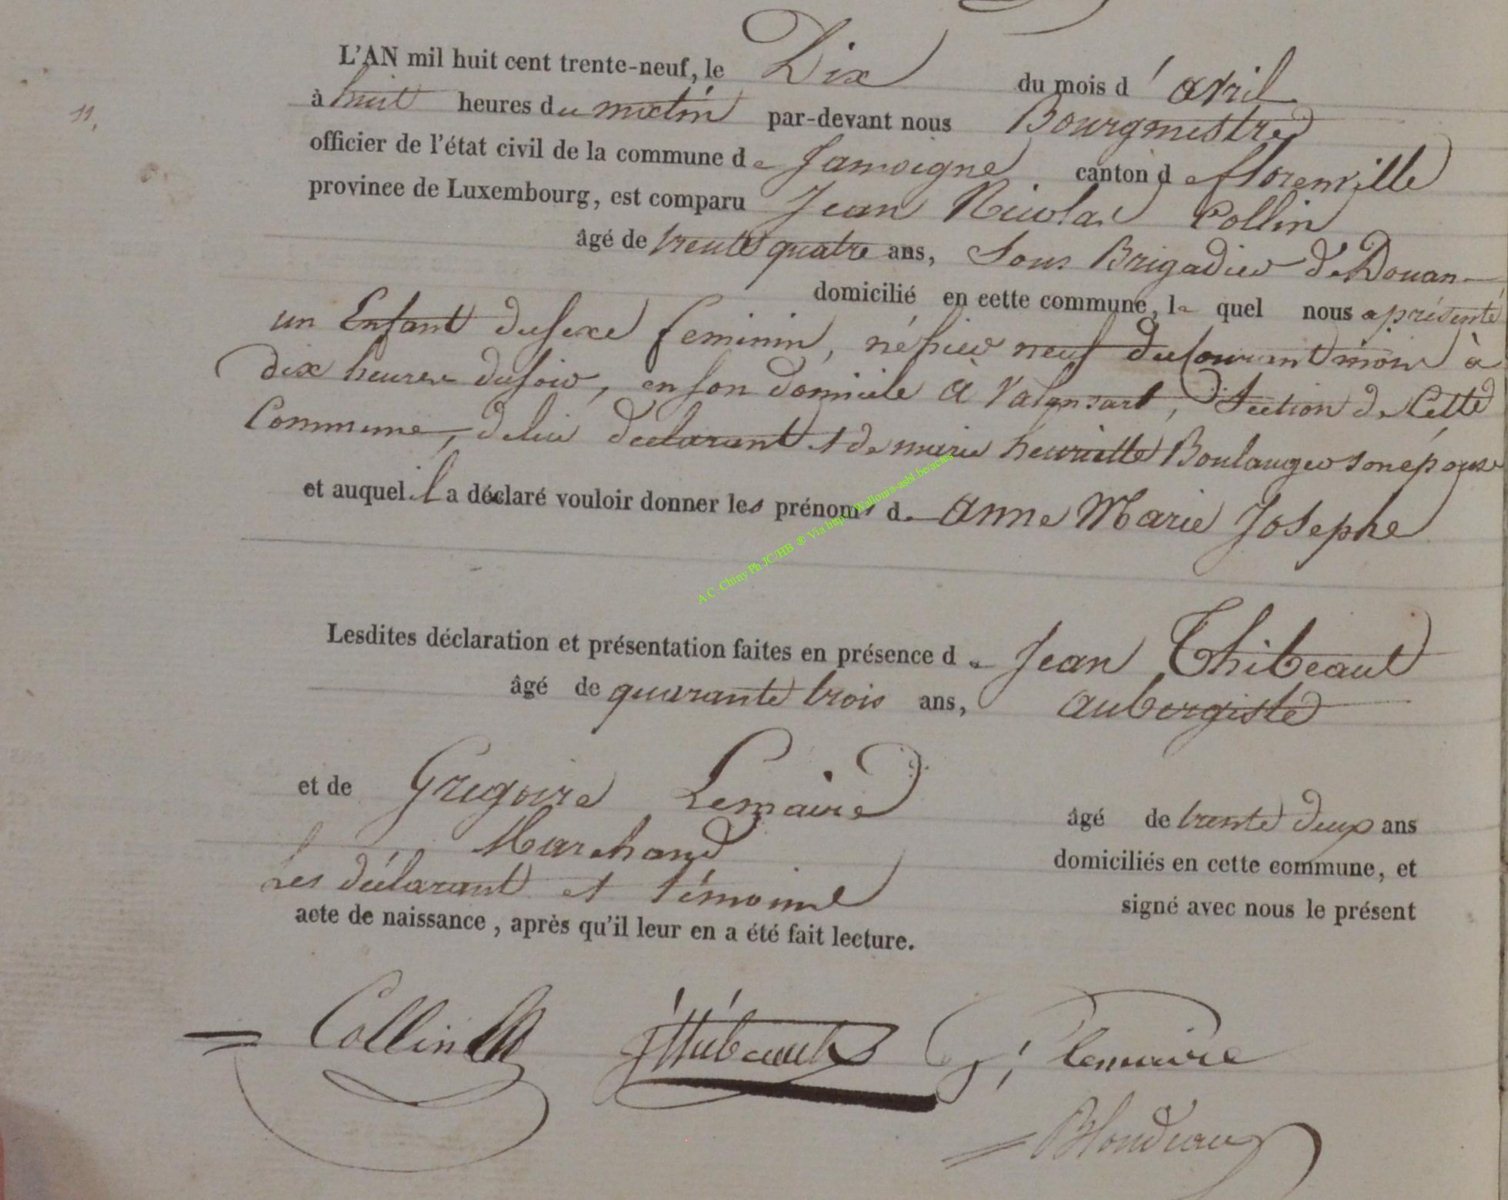 L'AN mil huit cent trente-neuf, le Dix du mois d'avril
11.
à huit heures du matin par-devant nous Bourgmestre
officier de l'état civil de la commune de Jamoigne canton de florenville
province de Luxembourg, est comparu Jean Nicolas Collin
âgé de trente quatre ans, Sous Brigadier de Douane
domicilié en cette commune, le quel nous a présenté
un Enfant du sexe feminin, né hier neuf du courant mois à
dix heures du soir, en son domicile à Valansart, Section de Cette
Commune, de lui declarant et de marie henriette Boulanger son épouse
et auquel il a déclaré vouloir donner les prénoms de Anne Marie Josephe
A.C. Chiny Ph JC/HB ® Via
Lesdites déclaration et présentation faites en présence de Jean Thibeaut
âgé de quarante trois ans, aubergiste
et de Grégoire Lemaire âgé de trente deux ans
Marchand domiciliés en cette commune, et
Les déclarant et témoins signé avec nous le présent
acte de naissance, après qu'il leur en a été fait lecture.
Collin JThibeaut g; lemaire
Blondeau